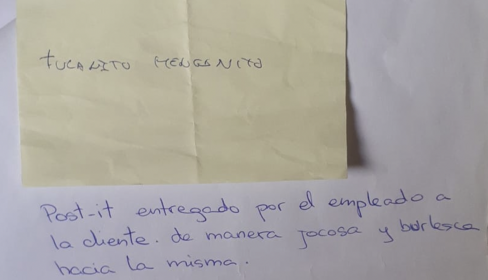 FUCANITO MENGANITO
Post-it entregado por el empleado a
la cliente. de manera jocosa y burlesca
hacia la misma.